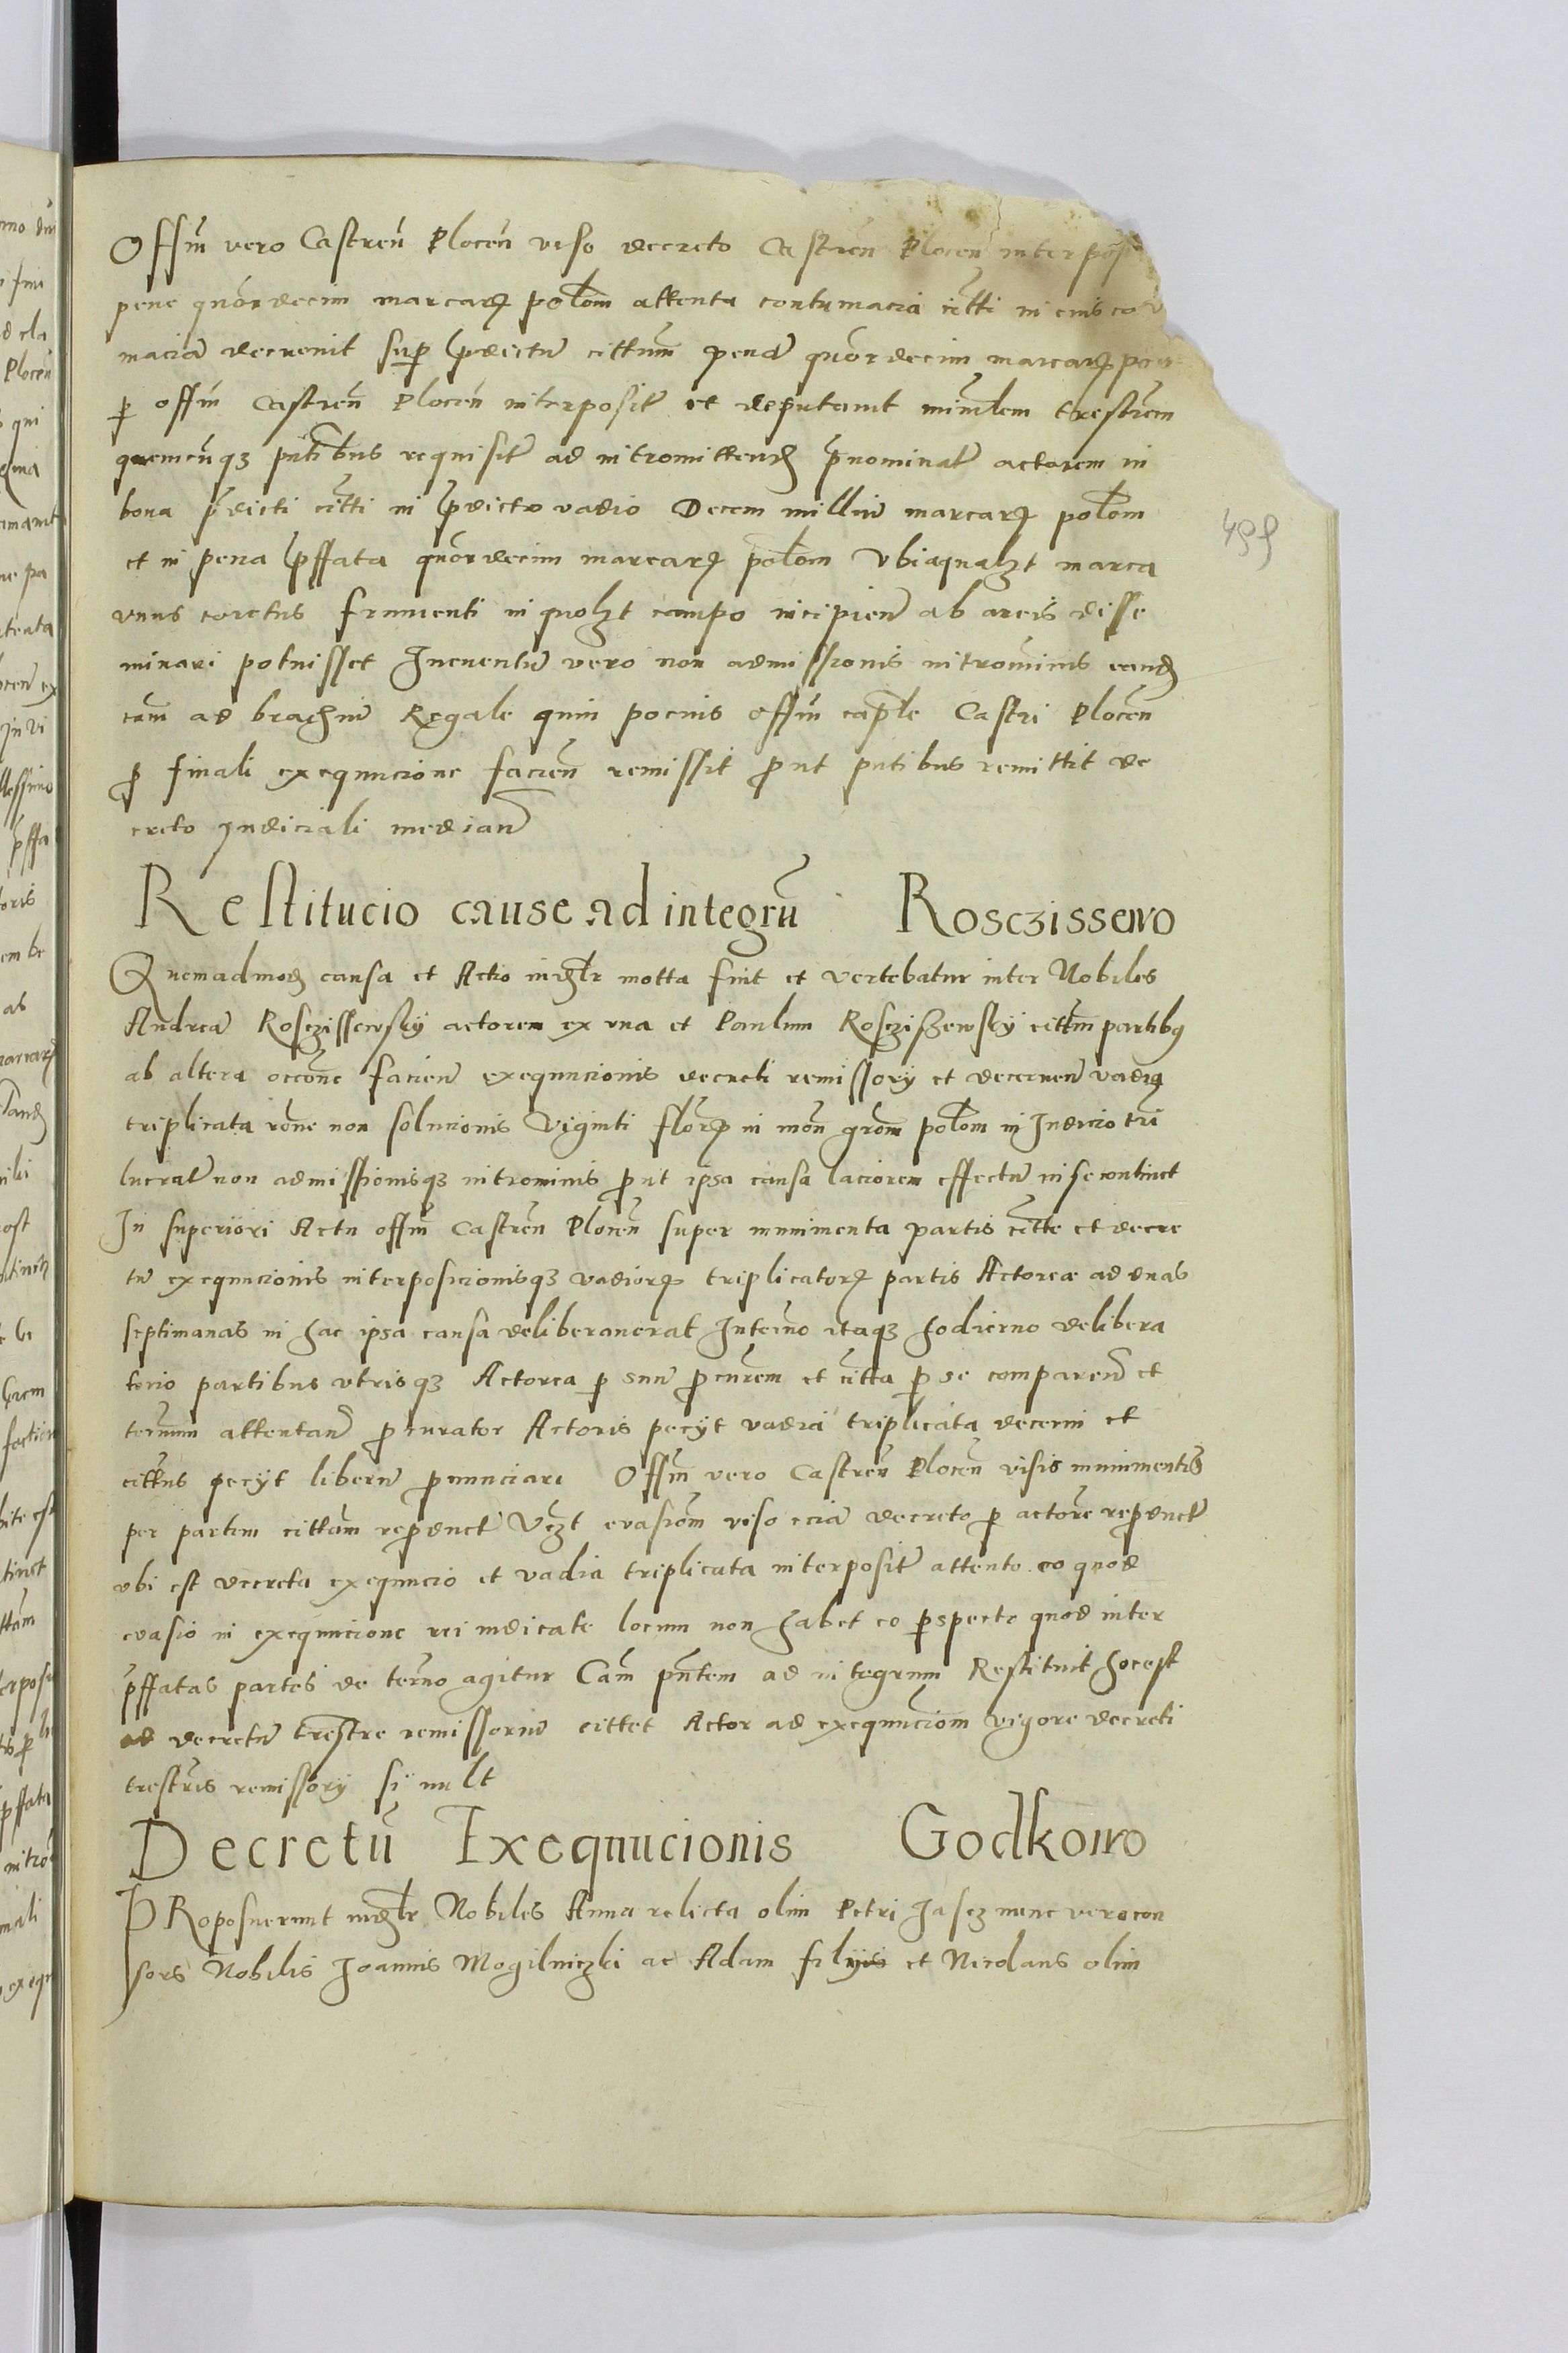 Offm̃ vero Castren̄ Plocen̄ viso decreto Castren̄ Plocen̄ interpos
pene quordecim marcarꝝ polom̃ attenta contumacia citti in eius co
macia decrevit suꝑ p̄dictū cittum penā quordecim marcarꝝ
ꝑ offm̃ Castren̄ Plocen̄ interposit̃ et deputavit minr̃lem trestrem̃
quemcūqꝫ pn̄tibus requisit̃ ad intromittend̃ p̄nominat̃ actorem in
bona p̄dicti citti in p̄dicto vadio Decem milliū marcarꝝ polom̃
et in pena p̄ffata quordecim marcarꝝ polom̃ Vbi a qualꝫt marca
vnus coretus frumenti in quolꝫt campo incipien̄ ab areis disse
minari potuisset Ineventū vero non admissionis intromīnis eand̃
cam̃ ad brachiū Regale quin pocius offm̃ cap̃le Castri Plocen̄
ꝓ finali exequucione facien̄ remissit ꝓut pn̄tibus remittit de
creto Judiciali median̄
Restitucio cause ad integrū Rosczissewo
Quemadmod̃ causa et Actio motta fuit et vertebatur inter Nobiles
Andreā Rosczissewsky actorem ex vna et Paulum Rosczissewsky citt̃m partibꝰ
ab altera occonē facien̄ exequucionis decreti remissorÿ et decernen̄ vadia
triplicata rōne non solucionis Viginti flor̃ꝝ in mon̄ grom̃ polom̃ in Judicio trī
lucrat̃ non admissionisqꝫ intromīnis ꝓut ipsa causa laciorem effectū in se continet
In superiori Actu offm̃ Castren̄ Plocen̄ super munimenta partis citte et decre
tū exequucionis interposicionisqꝫ vadiorꝝ triplicatorꝝ partis Actoreæ ad duas
septimanas in hac ipsa causa deliberaverat In term̃o itaqꝫ hodierno delibera
torio partibus utrisqꝫ Actorea ꝑ suū ꝓcur̃em et citta ꝑ se comparen̄ et
ter̃num attentan̄ ꝓcurator Actoris pecÿt vadia triplicata decerni et
cittus pecÿt liberū ꝓnunciari Offm̃ vero Castren̄ Plocen̄ visis munimentis
per partem cittam̃ reꝓduct̃ Vꝫt evasiom̃ viso eciā decreto ꝑ actorē reꝓduct̃
vbi est decreta exequucio et vadia triplicata interposit̃ attento eo quod
evasio in exequucione rei iudicate locum non habet eo ꝑspecto quod inter
p̄ffatas partes de ter̃no agitur Cam̃ pn̄tem ad integrum Restituit hoc est
ad decretū trestre remissoriū cittet Actor ad exequuciom̃ vigore decreti
trestris remissorÿ sÿ vult
Decretū Exequucionis Godkowo
PRoposuerunt Nobiles Anna relicta olim Petri Jasez nunc vero con
sors Nobilis Joannis Mogilniczki ac Adam et Nicolaus olim